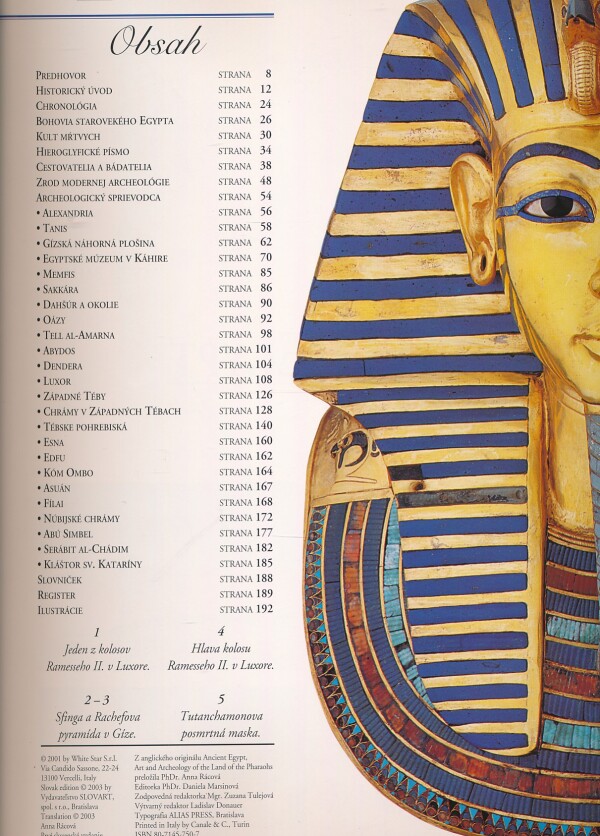 Obsah
PREDHOVOR STRANA 8
HISTORICKÝ ÚVOD STRANA 12
CHRONOLÓGIA STRANA 24
BOHOVIA STAROVEKÉHO EGYPTA STRANA 26
KULT MŔTVYCH STRANA 30
HIEROGLYFICKÉ PÍSMO STRANA 34
CESTOVATELIA A BÁDATELIA STRANA 38
ZROD MODERNEJ ARCHEOLÓGIE STRANA 48
ARCHEOLOGICKÝ SPRIEVODCA STRANA 54
• ALEXANDRIA STRANA 56
• TANIS STRANA 58
• GÍZSKÁ NÁHORNÁ PLOŠINA STRANA 62
• EGYPTSKÉ MÚZEUM V KÁHIRE STRANA 70
• MEMFIS STRANA 85
• SAKKÁRA STRANA 86
• DAHŠÚR A OKOLIE STRANA 90
• OÁZY STRANA 92
• TELL AL-AMARNA STRANA 98
• ABYDOS STRANA 101
• DENDERA STRANA 104
• LUXOR STRANA 108
• ZÁPADNÉ TÉBY STRANA 126
• CHRÁMY V ZÁPADNÝCH TÉBACH STRANA 128
• TÉBSKE POHREBISKÁ STRANA 140
• ESNA STRANA 160
• EDFU STRANA 162
• KÓM OMBO STRANA 164
• ASUÁN STRANA 167
• FÍLAI STRANA 168
• NÚBIJSKÉ CHRÁMY STRANA 172
• ABÚ SIMBEL STRANA 177
• SERÁBIT AL-CHÁDIM STRANA 182
• KLÁŠTOR SV. KATARÍNY STRANA 185
SLOVNÍČEK STRANA 188
REGISTER STRANA 189
ILUSTRÁCIE STRANA 192
1
Jeden z kolosov
Ramesseho II. v Luxore.
4
Hlava kolosu
Ramesseho II. v Luxore.
2 – 3
Sfinga a Rachefova
pyramída v Gíze.
5
Tutanchamonova
posmrtná maska.
© 2001 by White Star S.r.l.
Via Candido Sassone, 22-24
13100 Vercelli, Italy
Slovak edition © 2003 by
Vydavateľstvo SLOVART,
spol. s r.o., Bratislava
Translation © 2003
Anna Rácová
Prvé slovenské vydanie
Z anglického originálu Ancient Egypt,
Art and Archeology of the Land of the Pharaohs
preložila PhDr. Anna Rácová
Editorka PhDr. Daniela Marsinová
Zodpovedná redaktorka Mgr. Zuzana Tulejová
Výtvarný redaktor Ladislav Donauer
Typografia ALIAS PRESS, Bratislava
Printed in Italy by Canale & C., Turin
ISBN 80-7145-750-7